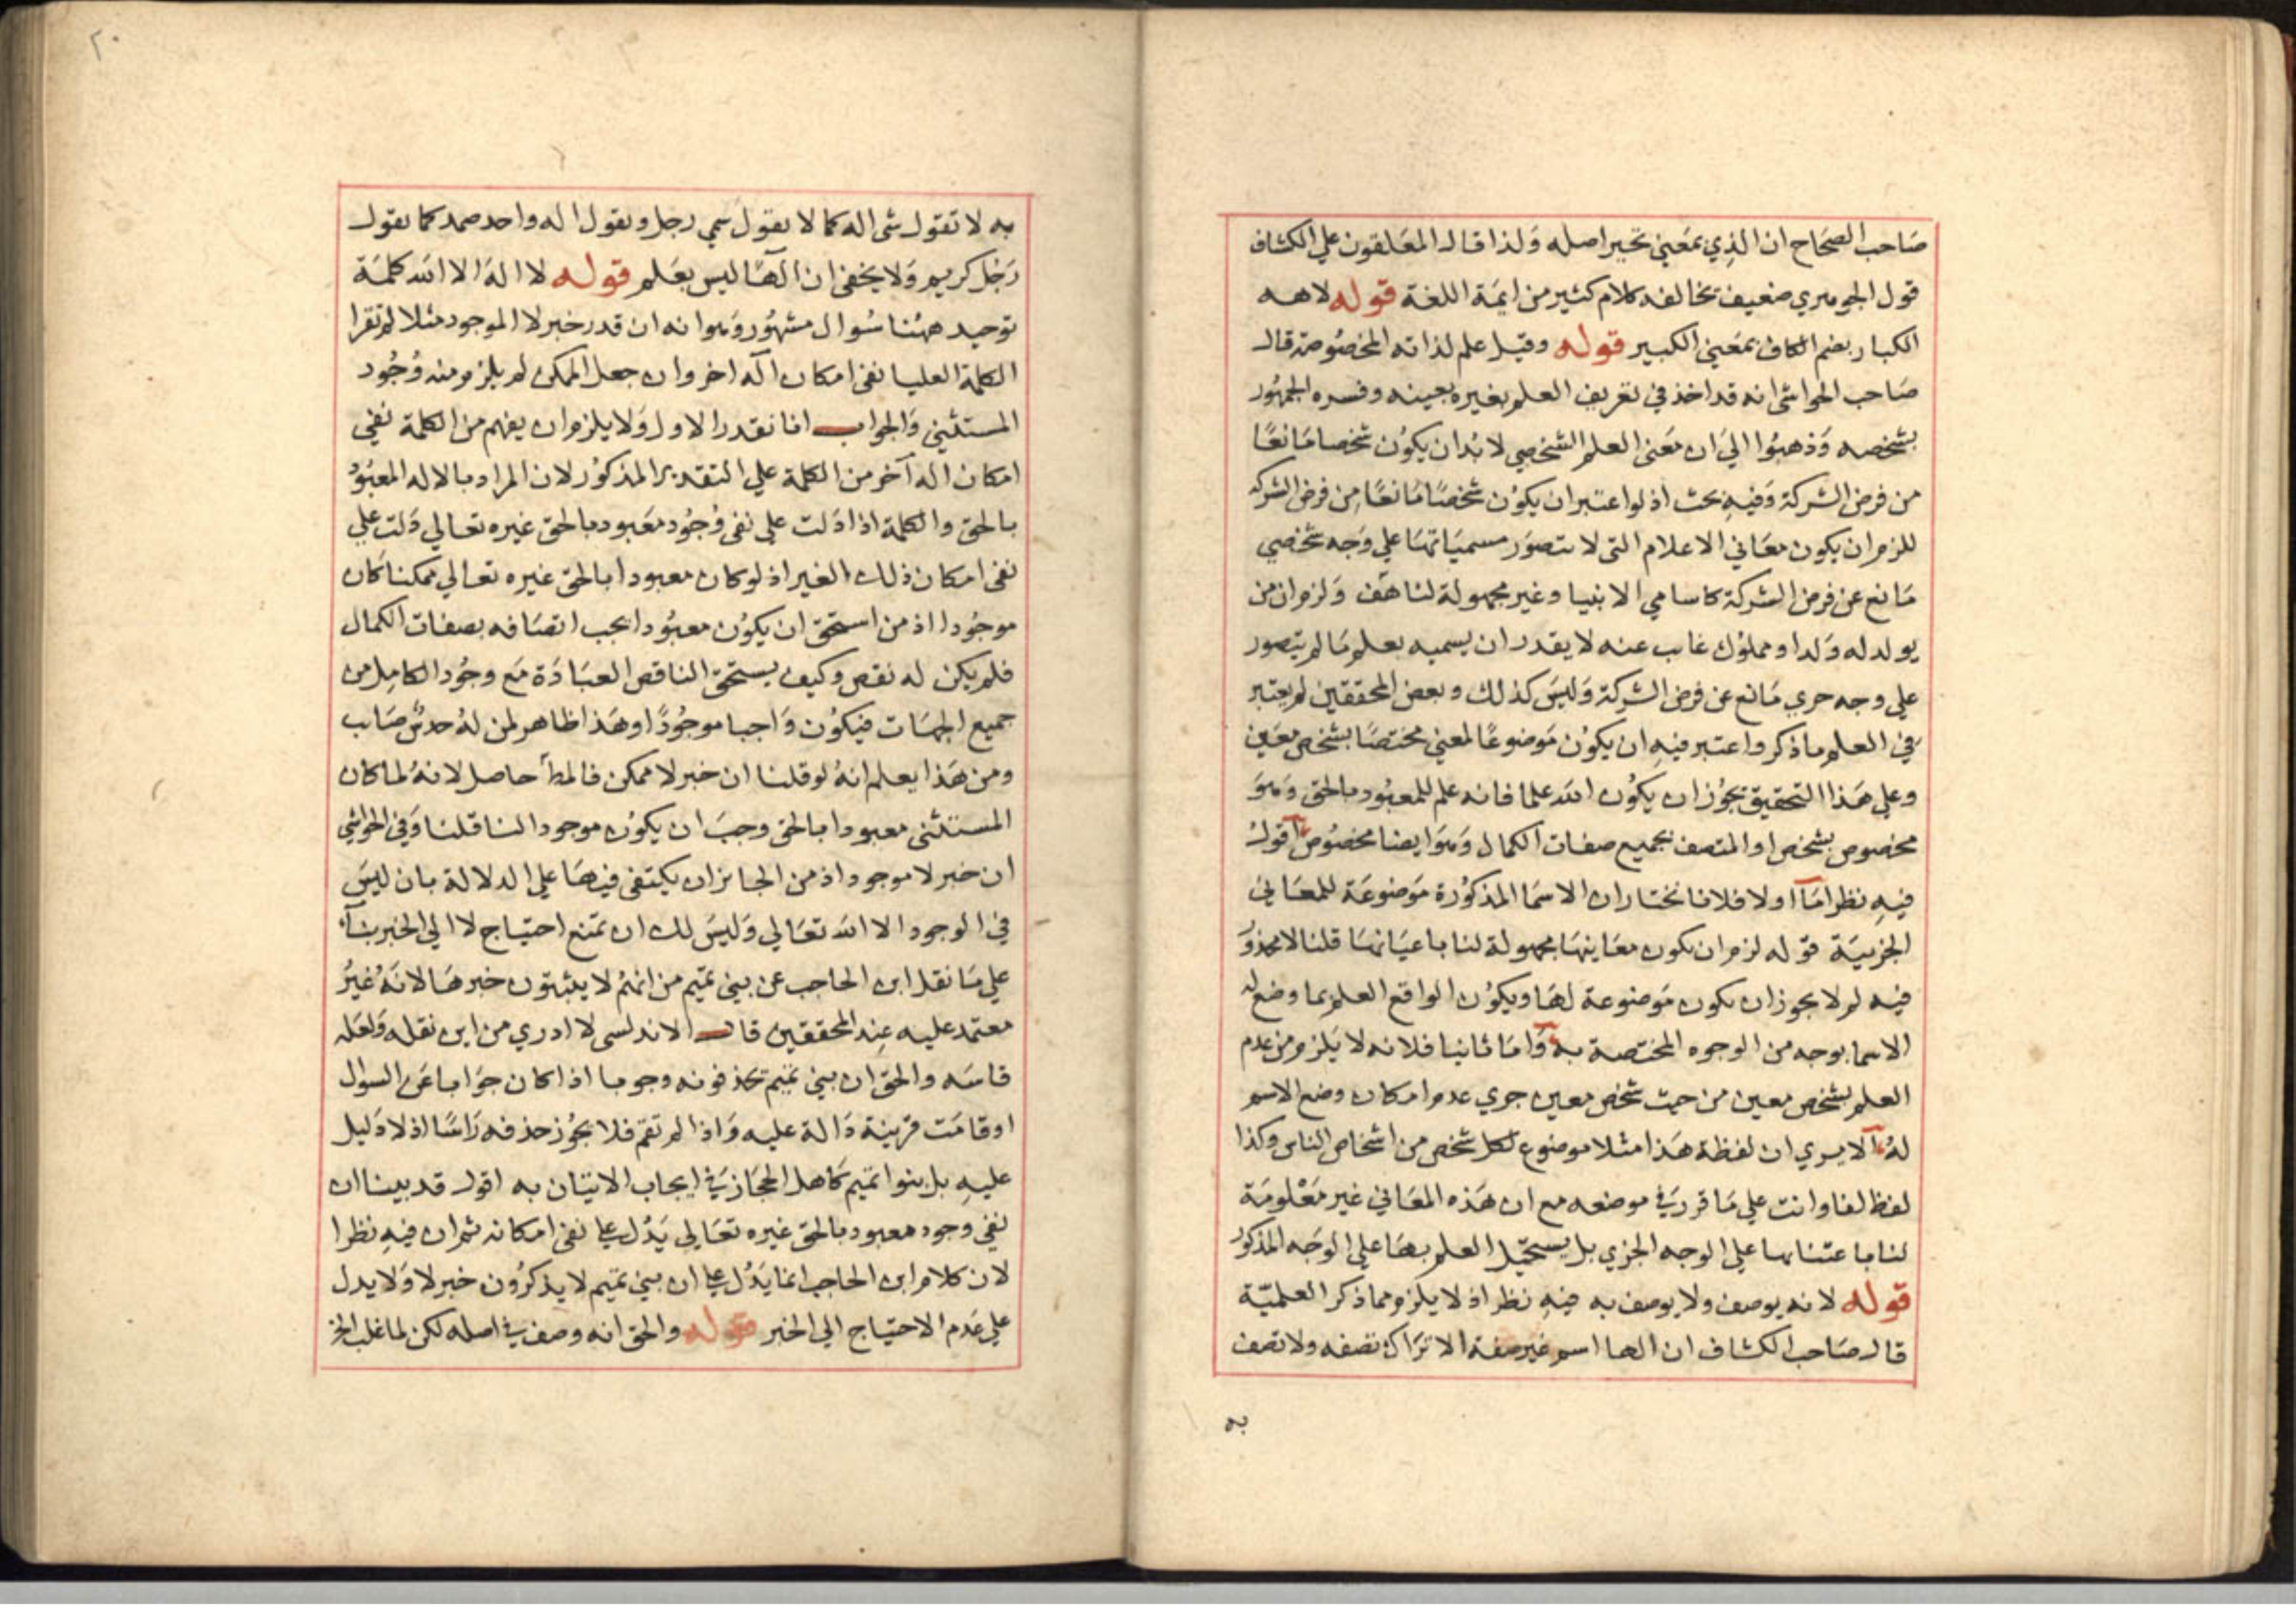 صَاحب الصحَاح ان الذِي بمَعَني تحير اصله وَلذا قال المعَلقون علي الكشاف
قول الجوهري ضعيف تخالفه كلام كثير من ايمَة اللغة قوله لاهه
الكبار بضم الكاف بمَعَني الكبير قوله وقيل علم لذاته المخصُوصة قال
صَاحب الحواشي انه قد اخذ في تعريف العلم بغيره بعينه وفسره الجمهُور
بشخصه وَذهبُوا الي ان معَنى العلم الشخصي لابُد ان يكوُن شخصا مَانعًا
من فرض الشركة وَفيهِ بحث اذ لو اعتبر ان يكوُن شخصًا مَانعًا مِن فرض الشركة
للزم ان يكون معَاني الاعلام التي لا يتصوَر مسميَاتهَا علي وَجه شخصي
مَانع عن فرض الشركة كاسامي الانبيا وغير مجهولة لنا هَف وَلزم ان من
يولد له وَلد او مملوُك غايب عنه لا يقدر ان يسميه بعلم مَا لم يتصور
علي وجه جزي مَانع عن فرض الشركة وَليسَ كذلك وبعض المحققين لم يعتبر
في العلم ما ذكر واعتبر فيهِ ان يكوُن مَوضوعًا لمعني مختصًا بشخص معَين
وعلي هَذا التحقيق يجوُز ان يكوُن الله علما فانه علم للمعبُود بالحق وَهوَ
مخصوص بشخص او المتصف بجميع صفات الكمال وَهوَ ايضا مخصُوص اقولُ
فيهِ نظر امَا اولا فلانا نختار ان الاسمَا المذكوُرة مَوضوعَة للمعَاني
الجزييَة قوله لزم ان يكون معَاينهَا مجهولة لنا باعيَانهَا قلنا لا محذوُر
فيه لم لا يجوز ان يكون مَوضوعة لهَا ويكوُن الواقع العلم بما وضع له
الاسما بوجه من الوجوه المختصة به وَامَا ثانيا فلانه لا يَلزم من عدم
العلم بشخص معين من حيث شخص معين جزي عدم امكان وضع الاسم
لهُ الا يري ان لفظة هَذا مثلا موضوع لكل شخص من اشخاص الناس وكذا
لفظ انا وانت علي مَا قرر في موضعه مع ان هَذه المعَاني غير مَعْلومَة
لنا علي الوجه الجزي بل يستحيل العلم بهَا علي الوجَه المذكور
قوله لانه يوصف ولا يوصف به فيهِ نظر اذ لا يلزم مما ذكر العلميّة
قال صَاحب الكشاف ان الها اسم غير صفة الا ترَاك تصفه ولا تصف
به
٢٠
به لا تقول شى اله كما لا يقول شي رجل ويقول اله واحد صمد كما يقول
رَجل كريم وَلا يخفى ان الهًا ليس بعَلم قوله لا الهَ الا الله كلمَة
توحيد ههُنا سُوال مشهُور وَهو انه ان قدر خبر لا الموجود مثلا لم تقرا
الكلمة العليا نفى امكان اله اخر وان جعل الممكن لم يلزم منه وُجُود
المستثني وَالجواب انا نقدر الاول وَلا يلزم ان يفهم من الكلمة نفي
امكان اله آخر من الكلمة علي التقدير المذكوُر لان المراد بالاله المعبُود
بالحق والكلمة اذا دَلت علي نفى وُجُود معَبود بالحق غيره تعالي دَلت علي
نفى امكان ذلك الغير اذ لو كان معبودا بالحق غيره تعالي ممكنا كان
موجُودا اذ من استحق ان يكوُن معبُودا يجب اتصَافه بصفات الكمال
فلم يكن له نقص وكيف يستحق الناقص العبَادَة مَع وجُود الكامِل من
جميع الجهَات فيكوُن وَاجبا موجُودًا وهَذا ظاهر لمن لهُ حدسٌ صَايب
ومن هَذا يعلم انهُ لو قلنا ان خبر لا ممكن فالمط حاصل لانهُ لما كان
المستثنى معبودا بالحق وجبَ ان يكوُن موجودا لنا قلنا وَفي الحواشي
ان خبر لا موجود اذ من الجايز ان يكتفى فيهَا علي الدلالة بان ليسَ
في الوجود الا الله تعَالي وَليسَ لك ان تمَنع احتيَاج لا الي الخبر بنآء
علي مَا نقل ابن الحاجب عن بني تميم من انهمُ لا يثبتون خبرهَا لانهَ غيرُ
معتمد عليه عِند المحققين قال الاندلسى لا ادري من اين نقله وَلعَله
قاسَه والحق ان بني تميم تحذفونه وجوبا اذا كان جوَابا عَن السوال
او قامَت قرينة دَالة عليه وَاذا لم تقم فلا يجوُز حذفه رَاسًا اذ لا دَليل
عليهِ بل بنوا تميم كَاهل الحجَاز في ايجاب الاتيَان به اقول قد بينا ان
نفي وجود معبود بالحق غيره تعَالي يَدُل علي نفى امكانه ثم ان فيهِ نظرا
لان كلام ابن الحاجب انما يَدُل علي ان بني تميم لا يذكرُون خبر لا وَلا يدل
علي عَدم الاحتيَاج الي الخبر قوله والحق انه وصف في اصله لكن لما غلب الخ